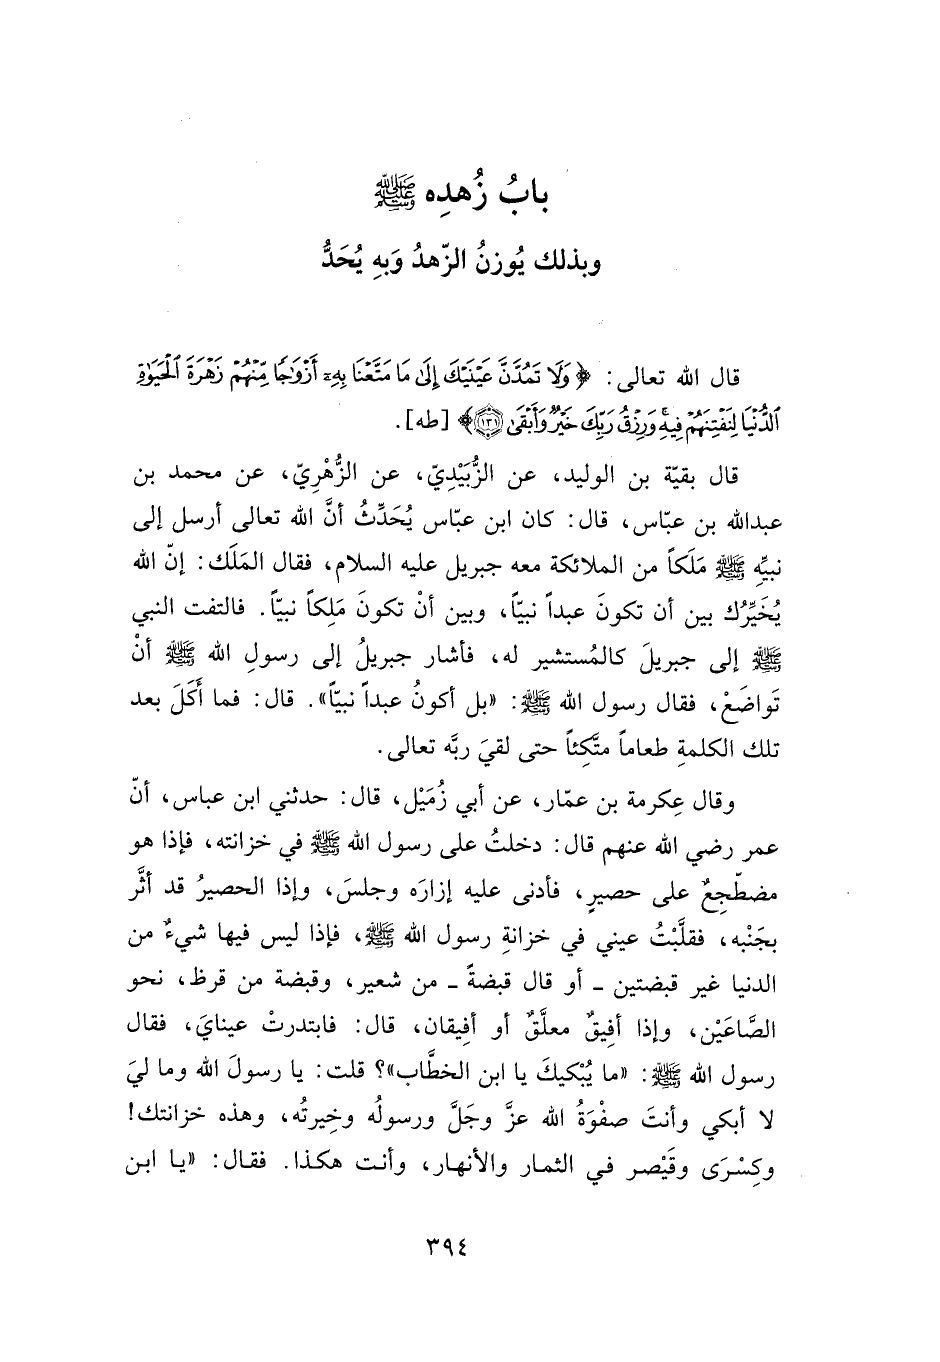 بابُ زُهدِه ﷺ
وبذلك يُوزنُ الزّهدُ وَبهِ يُحَدُّ
قال الله تعالى: ﴿وَلَا تَمُدَّنَّ عَيْنَيْكَ إِلَىٰ مَا مَتَّعْنَا بِهِۦٓ أَزْوَٰجًا مِّنْهُمْ زَهْرَةَ ٱلْحَيَوٰةِ
ٱلدُّنْيَا لِنَفْتِنَهُمْ فِيهِ ۚ وَرِزْقُ رَبِّكَ خَيْرٌ وَأَبْقَىٰ ١٣١﴾ [طه].
قال بقيّة بن الوليد، عن الزُّبَيْدِيّ، عن الزُّهْرِيّ، عن محمد بن
عبدالله بن عبّاس، قال: كان ابن عبّاس يُحَدِّثُ أنَّ الله تعالى أرسل إلى
نبيِّه ﷺ مَلَكاً من الملائكة معه جبريل عليه السلام، فقال المَلَك: إنّ الله
يُخَيِّرُك بين أن تكونَ عبداً نبيّاً، وبين أنْ تكونَ مَلِكاً نبيّاً. فالتفت النبي
ﷺ إلى جبريلَ كالمُستشير له، فأشار جبريلُ إلى رسولِ الله ﷺ أنْ
تَواضَعْ، فقال رسول الله ﷺ: «بل أكونُ عبداً نبيّاً». قال: فما أَكَلَ بعد
تلك الكلمةِ طعاماً متَّكِئاً حتى لقيَ ربَّه تعالى.
وقال عِكرمة بن عمّار، عن أبي زُمَيْل، قال: حدثني ابن عباس، أنّ
عمر رضي الله عنهم قال: دخلتُ على رسول الله ﷺ في خزانته، فإذا هو
مضطّجِعٌ على حصيرٍ، فأدنى عليه إزارَه وجلسَ، وإذا الحصيرُ قد أثَّر
بجَنْبه، فقلَّبْتُ عيني في خزانةِ رسول الله ﷺ، فإذا ليس فيها شيءٌ من
الدنيا غير قبضتين ـ أو قال قبضةً ـ من شعير، وقبضة من قرظ، نحو
الصَّاعَيْن، وإذا أفيقٌ معلَّقٌ أو أفِيقان، قال: فابتدرتْ عينايَ، فقال
رسول الله ﷺ: «ما يُبْكيكَ يا ابن الخطَّاب»؟ قلت: يا رسولَ الله وما ليَ
لا أبكي وأنتَ صفْوَةُ الله عزَّ وجَلَّ ورسولُه وخِيرتُه، وهذه خزانتك!
وكِسْرَى وقَيْصر في الثمار والأنهار، وأنت هكذا. فقال: «يا ابن
٣٩٤